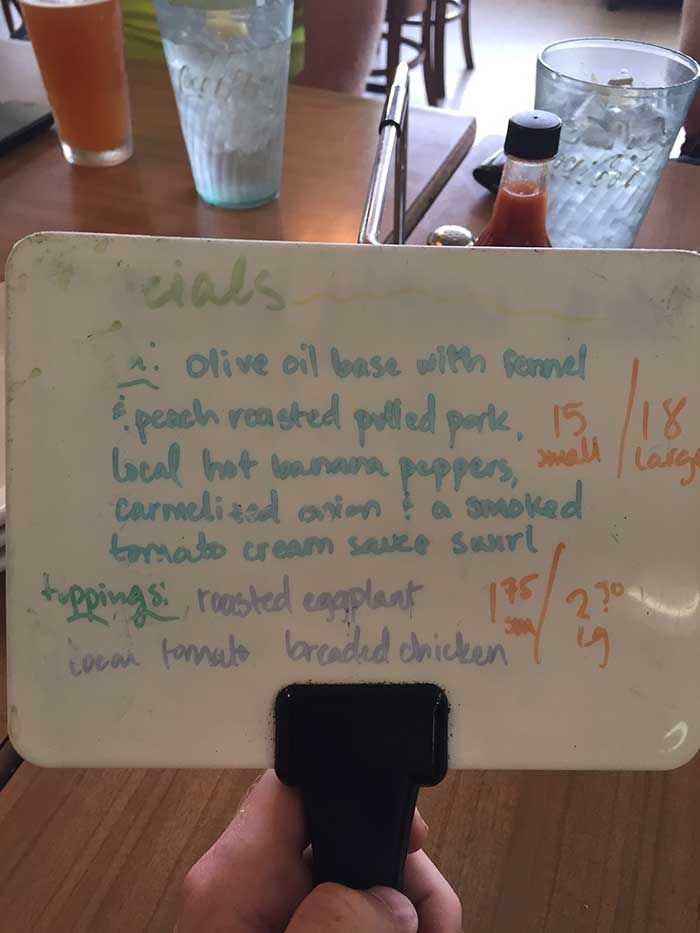 cials
olive oil base with fennel
& peach roasted pulled pork,
15 / 18
small large
local hot banana peppers,
carmelized onion & a smoked
tomato cream sauce swirl
toppings: roasted eggplant
1 75 /
sm lg
local tomato breaded chicken